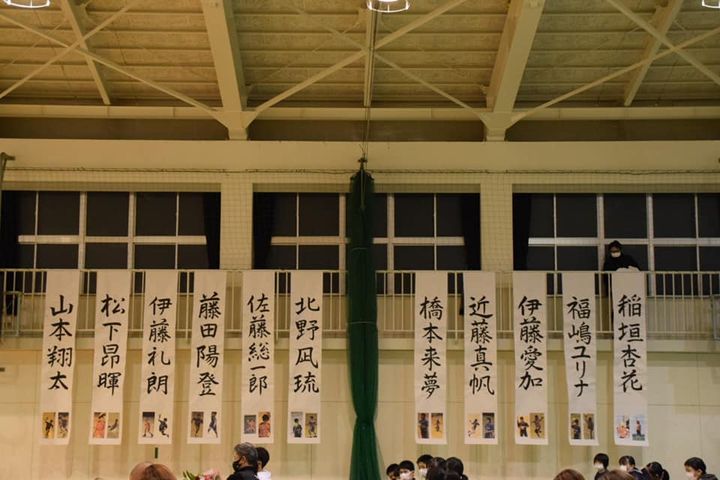 山本翔太
松下昂暉
伊藤礼朗
藤田陽登
佐藤総一郎
北野凪琉
橋本来夢
近藤真帆
伊藤愛加
福嶋ユリナ
稲垣杏花